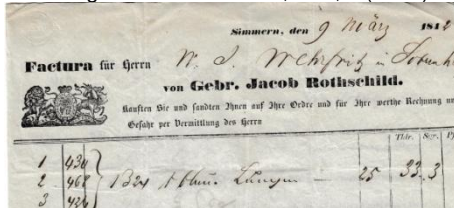 Simmern, den 9 März 184
Factura für Herrn W. J. Wehrfritz in
von Gebr. Jacob Rothschild.
Kauften Sie und sandten Ihnen auf Ihre Ordre und für Ihre werthe Rechnung un
Gefahr per Vermittlung des Herrn
Thlr. Sgr. Pf
1 434
2 467 25 33 3
3 424